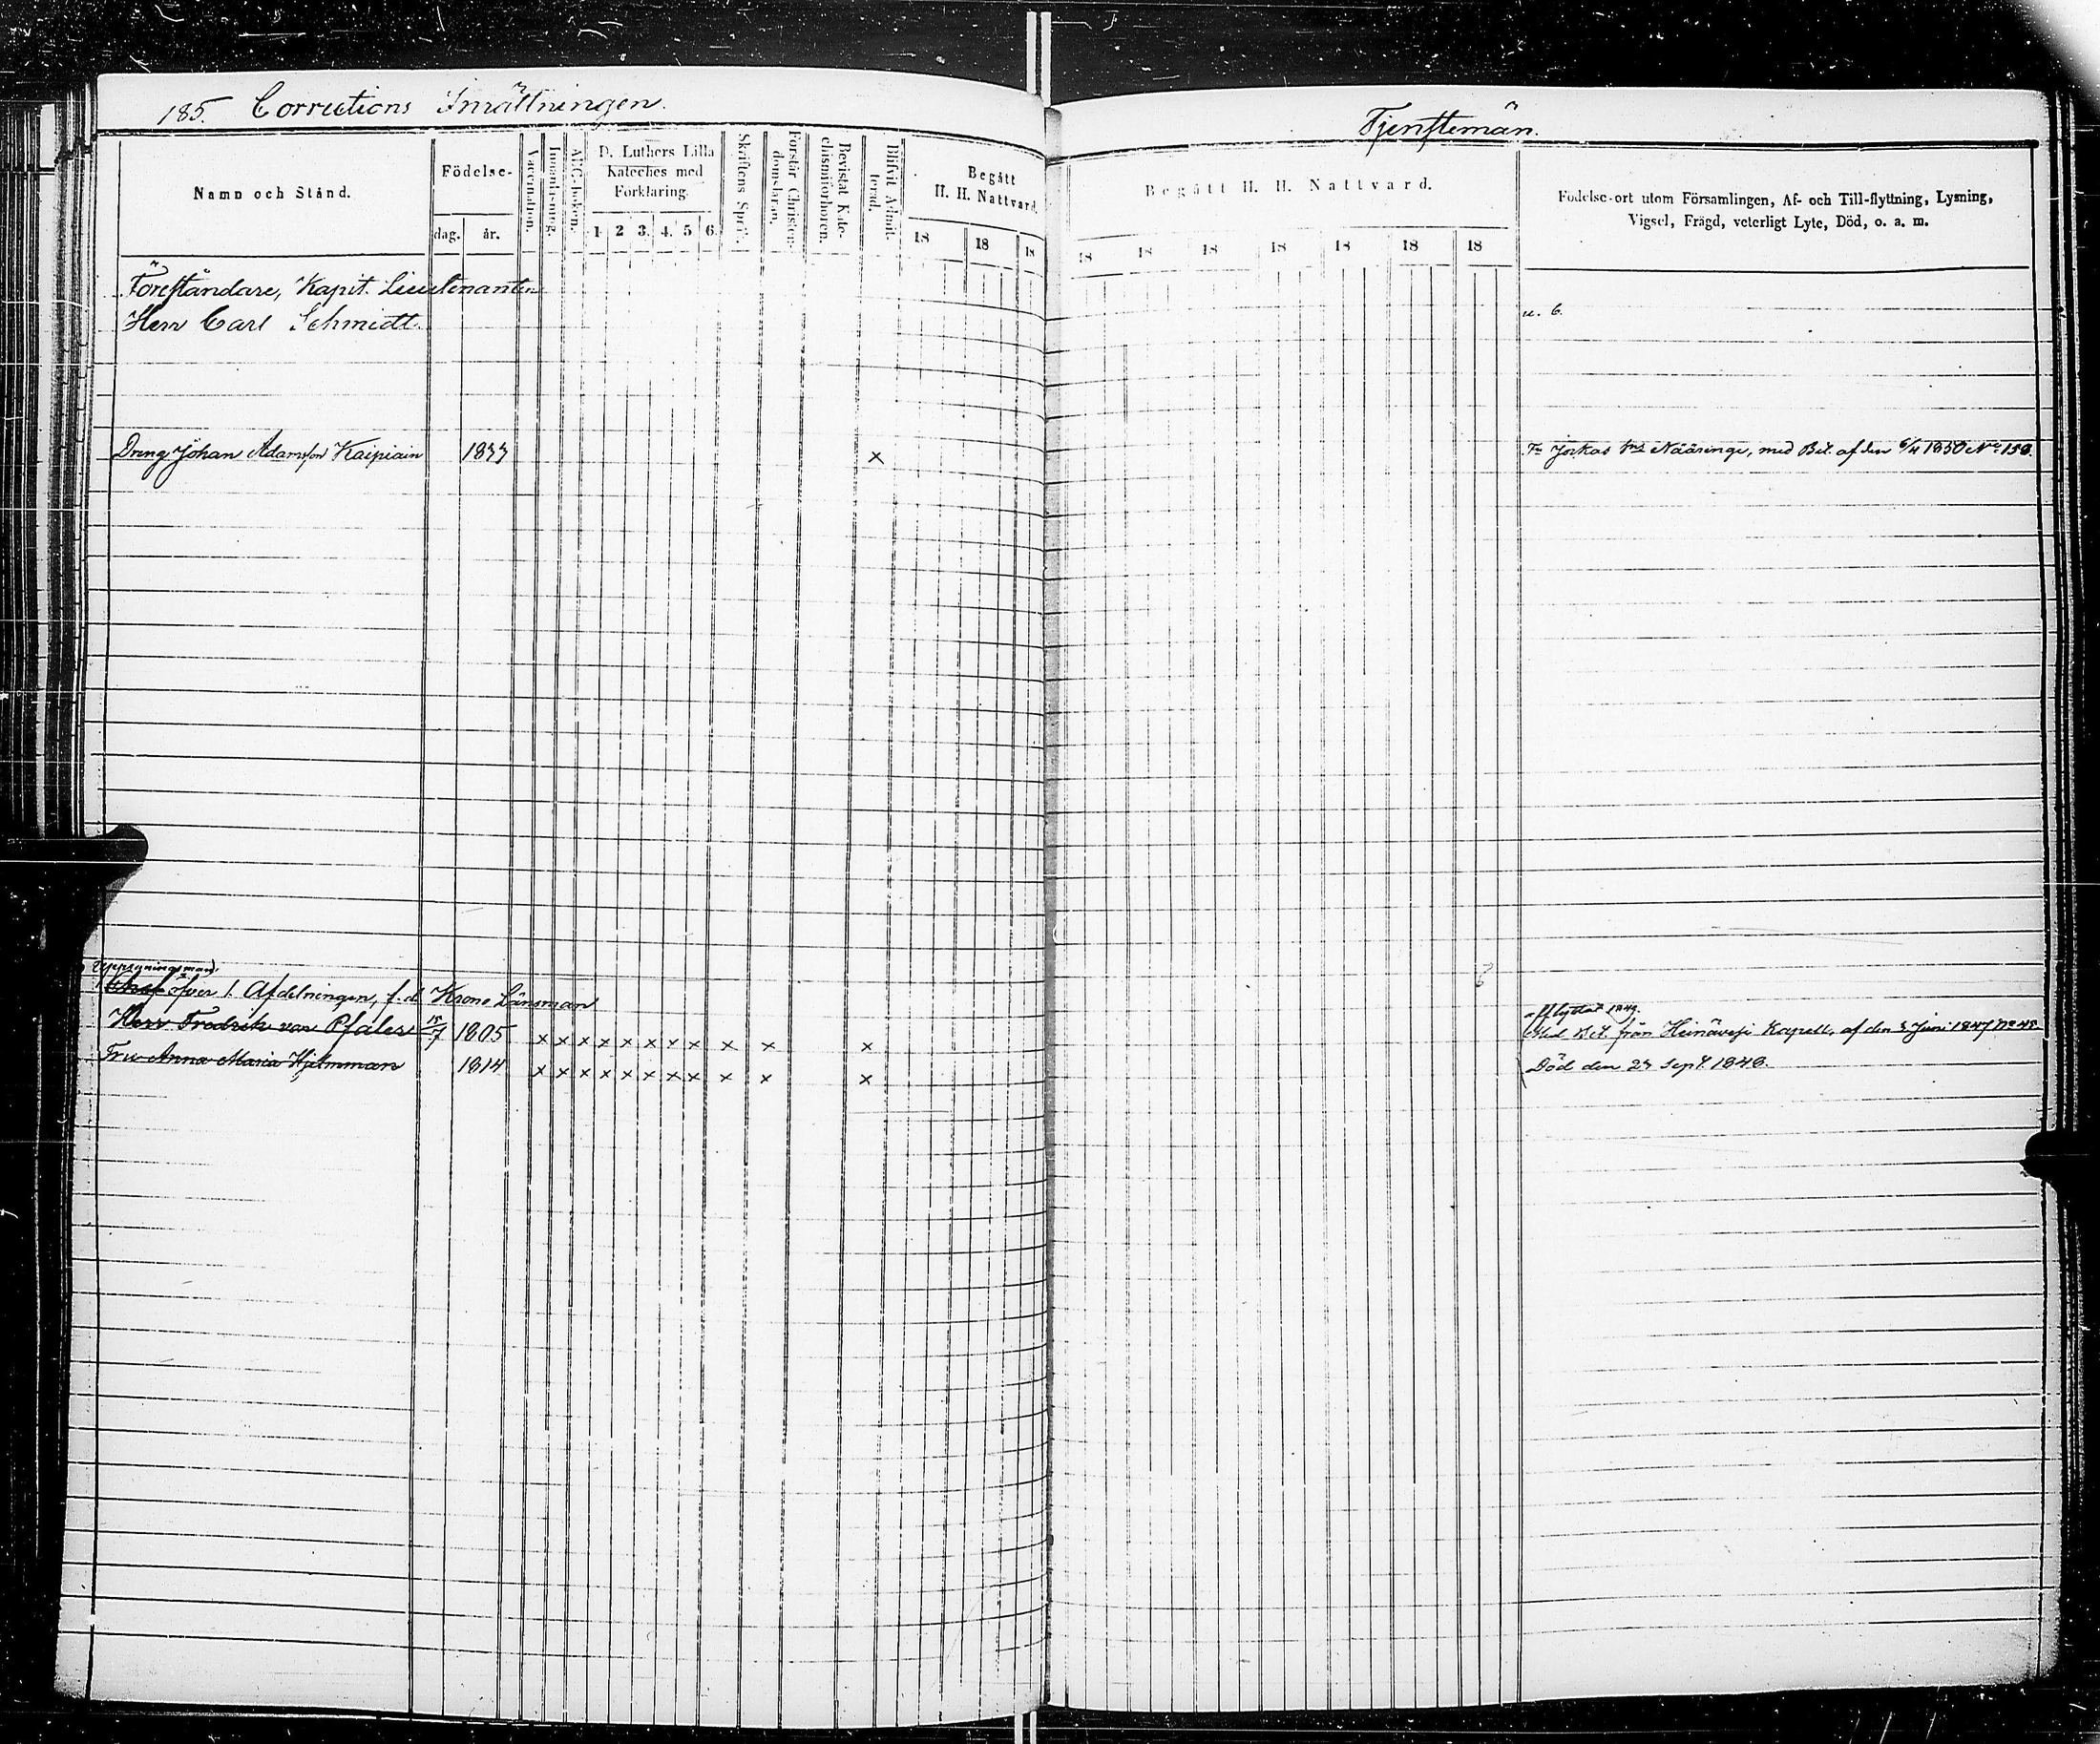 185. Corrections Inrättningen.
Tjenstemän.
Namn och Stånd.
Födelse-
dag. år.
Vaccination.
Innanläsning.
ABC-boken.
D. Luthers Lilla
Kateches med
Förklaring.
1 2 3. 4. 5 6.
Skriftens Språk.
Förstår Christen-
domsläran.
Bevistat Kate-
chismiförhören.
Blifvit Admit-
terad.
Begått
H. H. Nattvard.
18 18 18
Begått H. H. Nattvard.
18 18 18 18 18 18 18
Födelse-ort utom Församlingen, Af- och Till-flyttning, Lysning,
Vigsel, Frägd, veterligt Lyte, Död, o. a. m.
Föreståndare, Kapit. Lieutenanten
Herr Carl Schmidt.
u. 6.
Dreng Johan Adamsson Kaipiain 1833 x
Jorkas Nääringe, med Bet. af den 6/4 1850 No 150.
Uppsyningsman
öfver 1. Afdelningen, f. d. Krono Länsman
Herr Fredrik von Pfaler 15/7 1805 x x x x x x x x x x x
Afflyttat 1849.
Med Bet. från Heinävesi Kapell, af den 3 Juni 1847 No 45
Fru Anna Maria Hjelmman 1814 x x x x x x x x x x x
Död den 23 Sept. 1848.